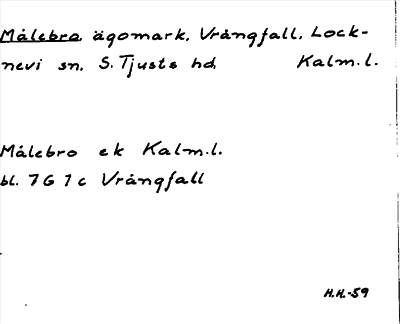 Målebro, ägomark, Vrångfall, Lock-
nevi sn, S. Tjusts hd, Kalm.l.
Målebro ek Kalm.l.
bl. 7G 1c Vrångfall
H.H.-59